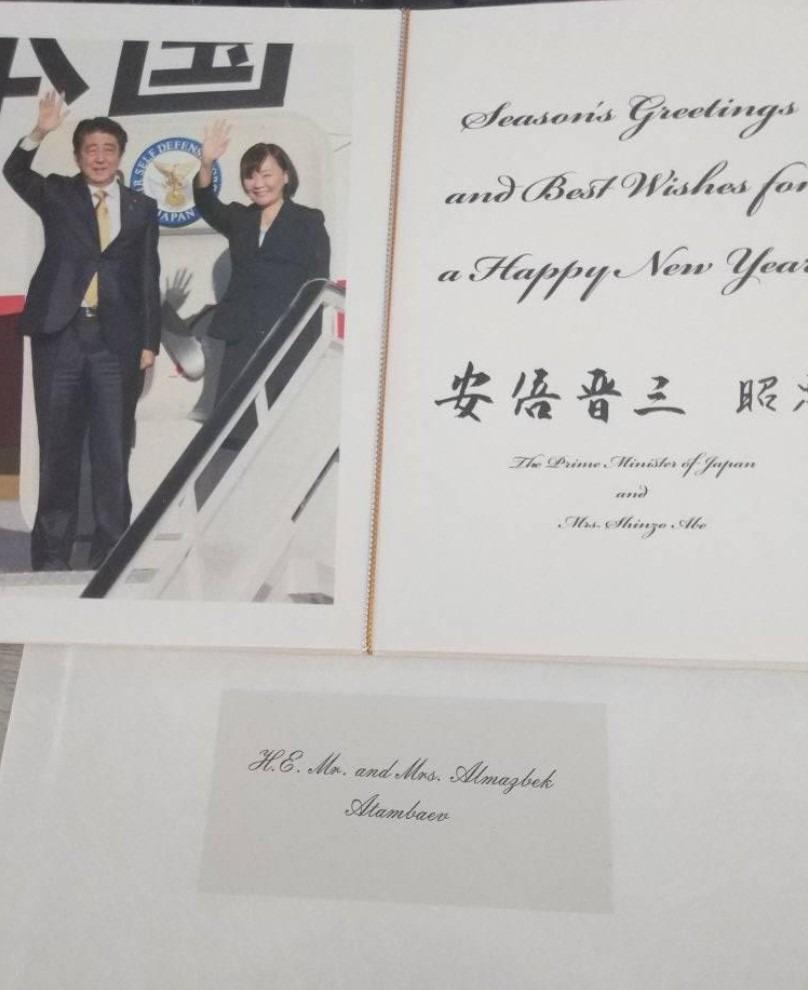 SELF DEFENSE
JAPAN
Season's Greetings
and Best Wishes for
a Happy New Year
安倍晋三 昭
The Prime Minister of Japan
and
Mrs. Shinzo Abe
H.E. Mr. and Mrs. Almazbek
Atambaev